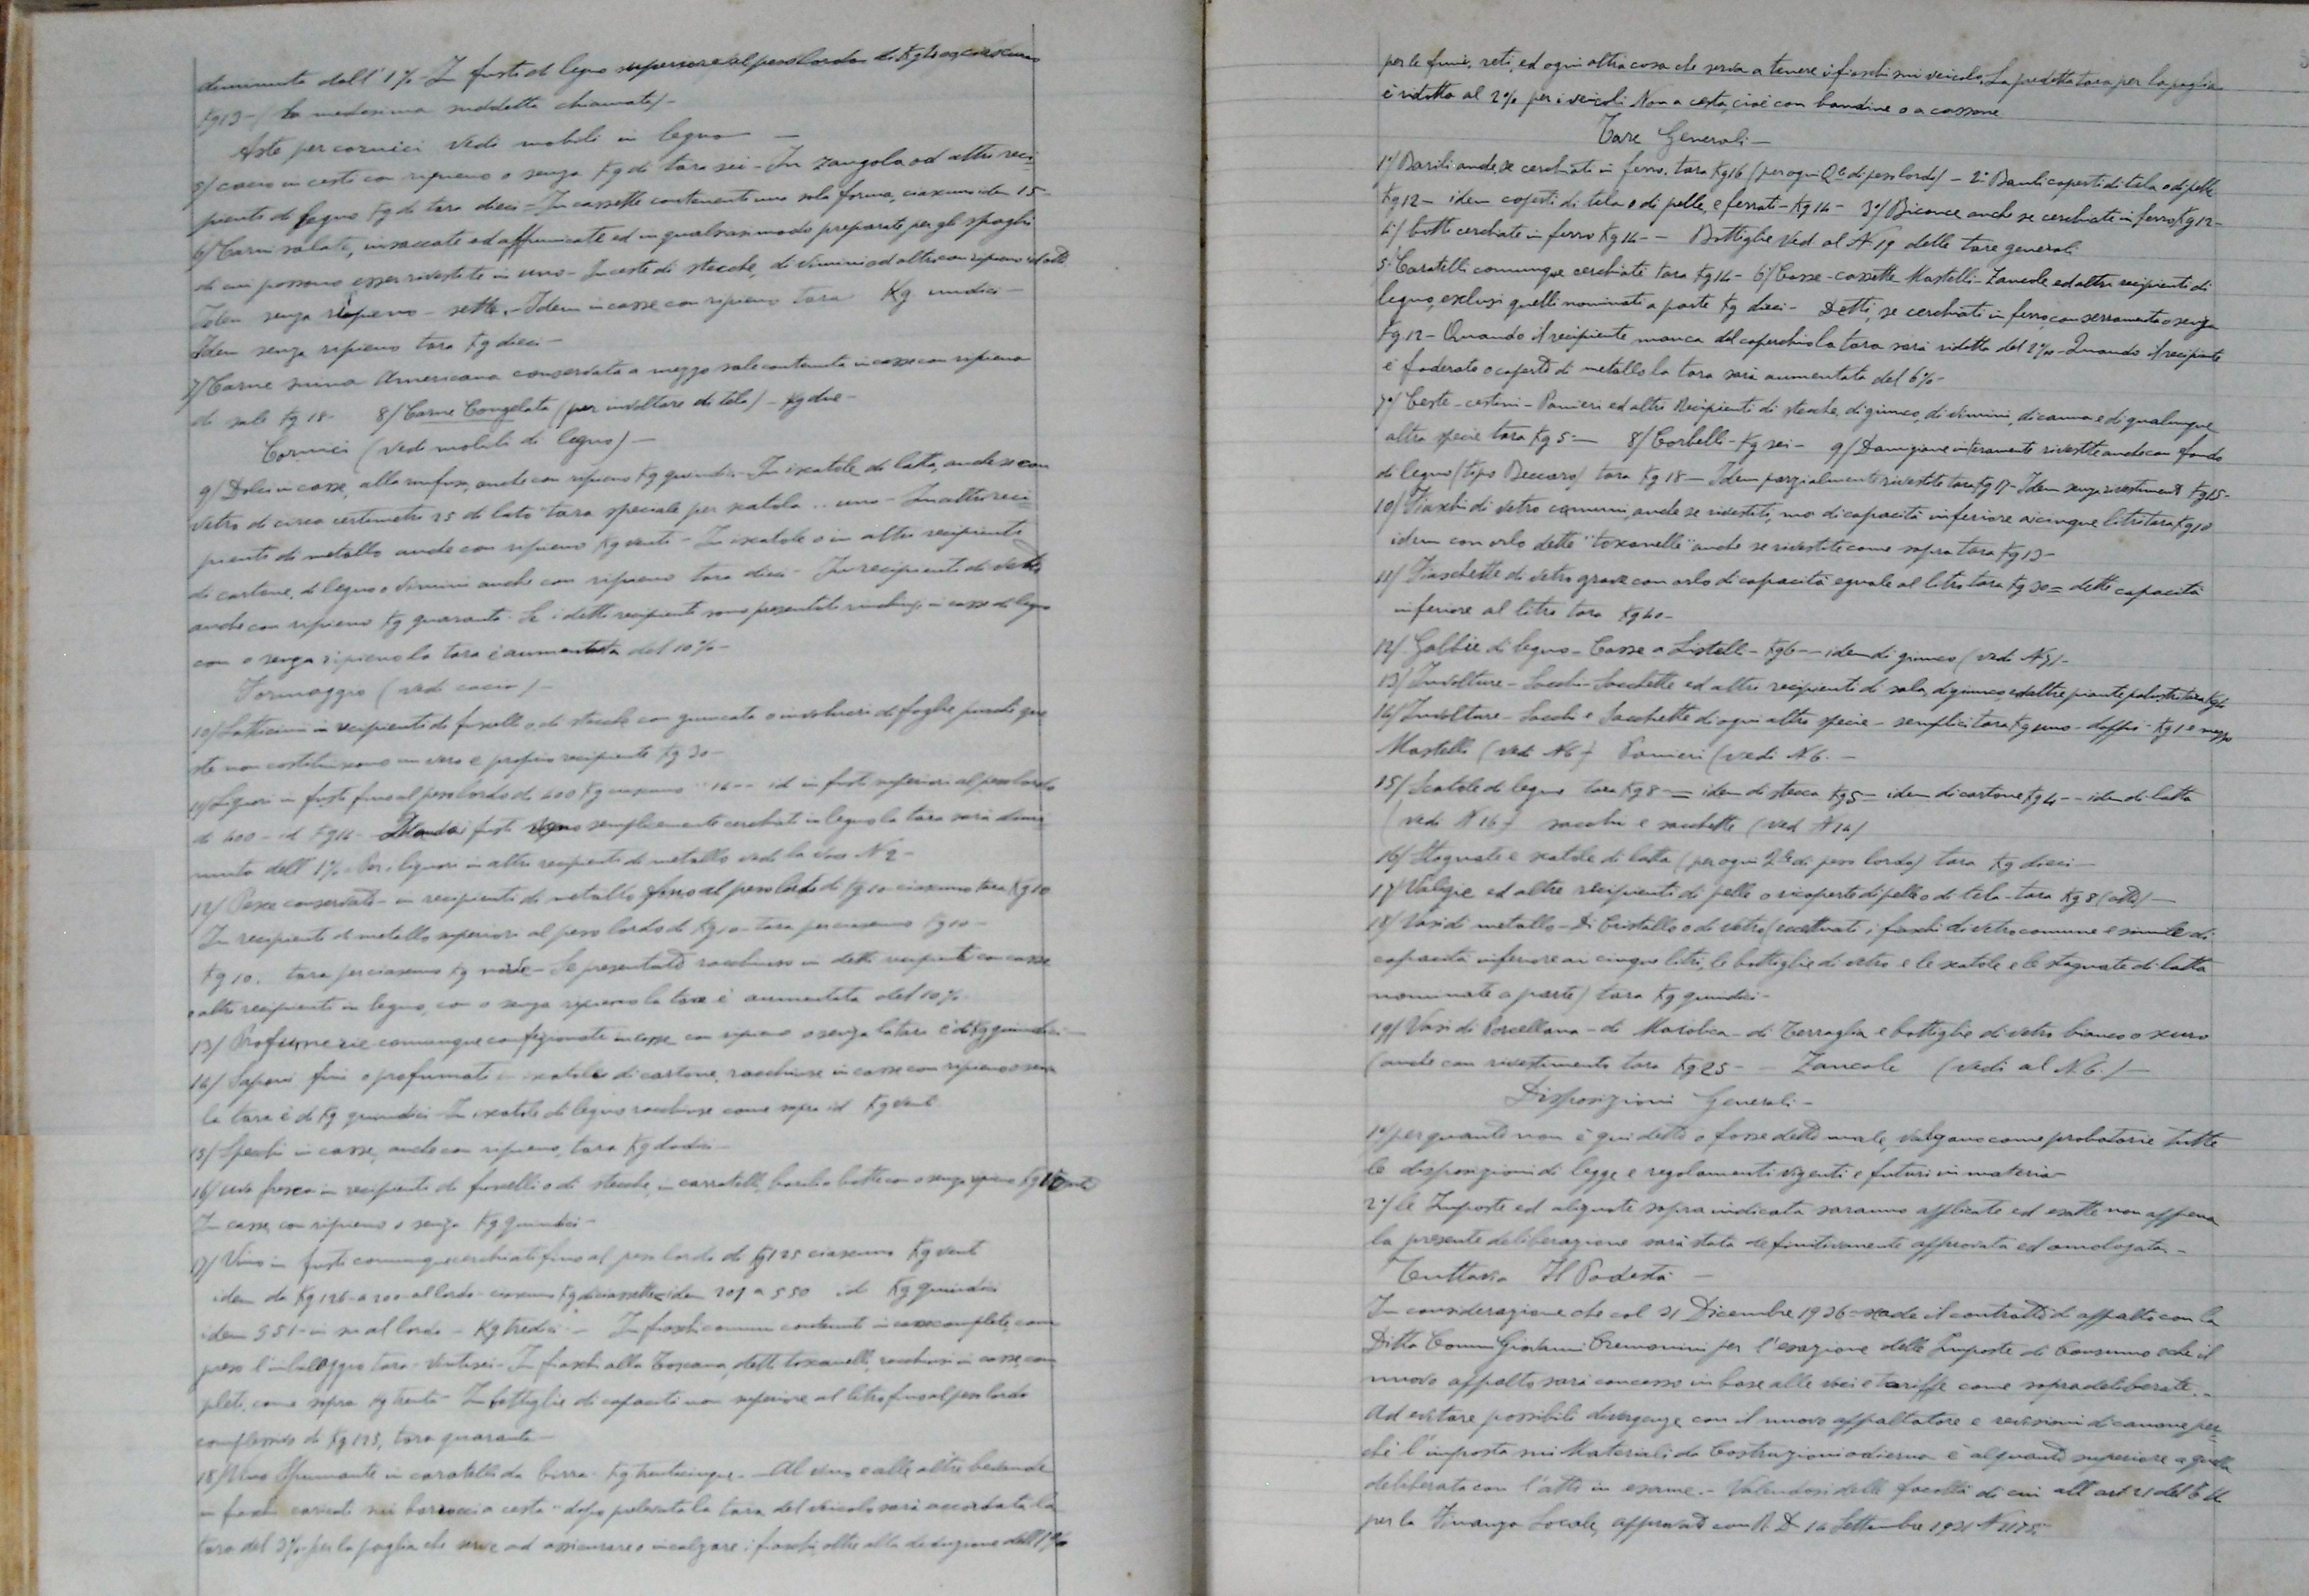 diminuita dall'1% - In fusti di legno superiore al peso lordo di Kg 400 ciascuno
Kg 13 - (la medesima suddetta chiamata) -
Aste per cornici vedi mobili in legno -
5/ cacio in ceste con ripieno o senza Kg di tara sei - In zangola od altri reci=
pienti di legno Kg di tara dieci - In cassette contenenti una sola forma, ciascuna idem 15 -
6/ Carni salate, insaccate ed affumicate ed in qualsiasi modo preparate, per gli spaghi
di cui possono esser rivestite in uno - In ceste di stecche, di vimini od altro con ripieno id otto
Idem senza ripieno - sette. - Idem in casse con ripieno tara Kg. undici -
Idem senza ripieno tara Kg dieci -
7/ Carne suina Americana conservata a mezzo sale contenuta in casse con ripieno
di sale Kg 18 - 8/ Carne Congelata (per involture di tela) - Kg due -
Cornici (vedi mobili di legno) -
9/ Dolci in casse, alla rinfusa, anche con ripieno Kg quindici - In iscatole di latta, anche se con
vetro di circa centimetri 25 di lato tara speciale per scatola .. uno - In altri reci=
pienti di metallo anche con ripieno Kg venti - In iscatole o in altri recipienti
di cartone, di legno o vimini anche con ripieno tara dieci - In recipienti di vetro
anche con ripieno Kg quaranta. Se i detti recipienti sono presentati rinchiusi in casse di legno
con o senza ripieno la tara è aumentata del 10% -
Formaggio (vedi cacio) -
10/ Latticini in recipienti di fuscelli o di stecche con giuncata o involucri di foglie purchè que
ste non costituiscano un vero e proprio recipiente Kg 30 -
11/ Liquori in fusti fino al peso lordo di 400 Kg ciascuno " 16 -- id in fusti superiori al peso lordo
di 400 - id Kg 14 - Quando i fusti sono semplicemente cerchiati in legno la tara sarà dimi
nuita dell'1% - Per i liquori in altri recipienti di metallo vedi la voce N 2 -
12/ Pesce conservato - in recipienti di metallo fino al peso lordo di Kg 10 ciascuno tara Kg 10
In recipienti di metallo superiori al peso lordo di Kg 10 - tara per ciascuno Kg 10 -
Kg 10. tara per ciascuno Kg - Se presentato racchiuso in detti recipienti con casse
o altri recipienti in legno, con o senza ripieno la tara è aumentata del 10%.
13/ Profumerie comunque confezionate in casse con ripieno o senza la tara è di Kg quindici
14/ Saponi fini o profumati in iscatole di cartone, racchiuse in casse con ripieno o senza
la tara è di Kg quindici - In iscatole di legno racchiuse come sopra id Kg venti
15/ Specchi in casse, anche con ripieno, tara Kg dodici -
16/ uva fresca in recipienti di fuscelli o di stecche, in carratelli, barili o botti con o senza ripieno Kg
In casse, con ripieno o senza Kg quindici -
17/ Vino in fusti comunque cerchiati fino al peso lordo di Kg 125 ciascuno Kg venti
idem da Kg 126 - a 200 - al lordo - ciascuno Kg diciassette - idem 201 a 550 id Kg quindici
idem 551 - in su al lordo - Kg tredici - In fiaschi comuni contenuti in casse complete, com
preso l'imballaggio tara - ventisei - In fiaschi alla Toscana, detti toscanelli, racchiusi in casse, com
plete, come sopra Kg trenta - In bottiglie di capacità non superiore al litro fino al peso lordo
complessivo di Kg 125, tara quaranta -
18/ Vino Spumante in caratelli da birra - Kg trentacinque - Al vino e alle altre bevande
in fiaschi caricati sui barrocci a cesta - dopo prelevata la tara, del veicolo sarà accordata la
tara del 3% - per la paglia che serve ad assicurare o incalzare i fiaschi, oltre alla deduzione dell'1%
per le funi, reti, ed ogni altra cosa che serva a tenere i fiaschi sui veicolo. La predetta tara per la paglia
è ridotta al 2% per i veicoli Non a cesta, cioè con bandine o a cassone
Tare Generali -
1°/ Barili anche se cerchiati in ferro, tara Kg 16 (per ogni Q.le di peso lordo) - 2° Bauli coperti di tela o di pelle
Kg 12 - idem coperti di tela o di pelle, e ferrati - Kg 14 - 3°/ Biconce anche se cerchiate in ferro Kg 12 -
4°/ botti cerchiate in ferro Kg 14 -- Bottiglie Ved. al N. 19 delle tare generali
5/ Caratelli comunque cerchiati tara Kg 14 - 6°/ Casse - cassette Mastelli - Zancole ed altri recipienti di
legno, esclusi quelli nominati a parte Kg dieci - Detti, se cerchiati in ferro, con serramento o senza
Kg 12 - Quando il recipiente manca del coperchio la tara sarà ridotta del 2% - Quando il recipiente
è foderato o coperto di metallo la tara sarà aumentata del 6% -
7°/ Ceste - cestini - Panieri ed altri Recipienti di stecche, di giunco, di vimini, di canna e di qualunque
altra specie tara Kg 5 - 8/ Corbelli - Kg sei - 9/ Damigiane interamente rivestite anche con fondo
di legno (tipo Beccaro) tara Kg 18 - Idem parzialmente rivestite tara Kg 17 - Idem senza rivestimento Kg 15 -
10/ Fiaschi di vetro comuni, anche se rivestiti, ma di capacità inferiore ai cinque litri tara Kg 10
idem con orlo detti "toscanelli" anche se rivestiti come sopra tara Kg 13 -
11/ Fiaschette di vetro grave con orlo di capacità eguale al litro tara Kg 30 = dette capacità
inferiore al litro tara Kg 40 -
12/ Gabbie di legno - Casse a Listelli - Kg 6 - - idem di giunco (vedi N 7) -
13/ Involture - Sacchi - Sacchette ed altri recipienti di sala, di giunco, ed altre piante palustri tara Kg
14/ Involture - Sacchi e Sacchette di ogni altra specie - semplici tara Kg uno - doppi - Kg 1 e mezzo
Mastelli (vedi N 6) Panieri (vedi N 6. -
15/ Scatole di legno tara Kg 8 - = idem di stecca Kg 5 - idem di cartone Kg 4 - - idem di latta
(vedi N 16) sacchi e sacchette (ved N 14)
16/ Stagnate e scatole di latta (per ogni Q.le di peso lordo) tara Kg dieci -
17/ Valigie ed altre recipienti di pelle o ricoperte di pelle o di tela - tara Kg 8 (otto) -
18/ Vasi di metallo - Di Cristallo o di vetro (eccettuati i fiaschi di vetro comune e simile di
capacità inferiore ai cinque litri, le bottiglie di vetro e le scatole e le stagnate di latta
nominate a parte) tara Kg quindici -
19/ Vasi di Porcellana - di Maiolica - di Terraglia e bottiglie di vetro bianco o scuro
(anche con rivestimento tara Kg 25 - - Zancole (vedi al N. 6.) -
Disposizioni Generali -
1°/ per quanto non è qui detto o fosse detto male, valgano come probatorie tutte
le disposizioni di legge e regolamenti vigenti e futuri in materia
2°/ le Imposte ed aliquote sopra indicata saranno applicate ed esatte non appena
la presente deliberazione sarà stata definitivamente approvata ed omologata -
Tuttavia Il Podestà -
In considerazione che col 31 Dicembre 1936 - scade il contratto di appalto con la
Ditta Comm Giovanni Cremonini per l'esazione delle Imposte di Consumo e che il
nuovo appalto sarà concesso in base alle voci e tariffe come sopra deliberate. -
Ad evitare possibili divergenze con il nuovo appaltatore e revisioni di canone per=
chè l'imposta sui Materiali da Costruzioni odierna è alquanto superiore a quella
deliberata con l'atto in esame. - Valendosi delle facoltà di cui all'art 21 del T U
per la Finanza Locale, approvato con R. D 14 Settembre 1931 N 1175